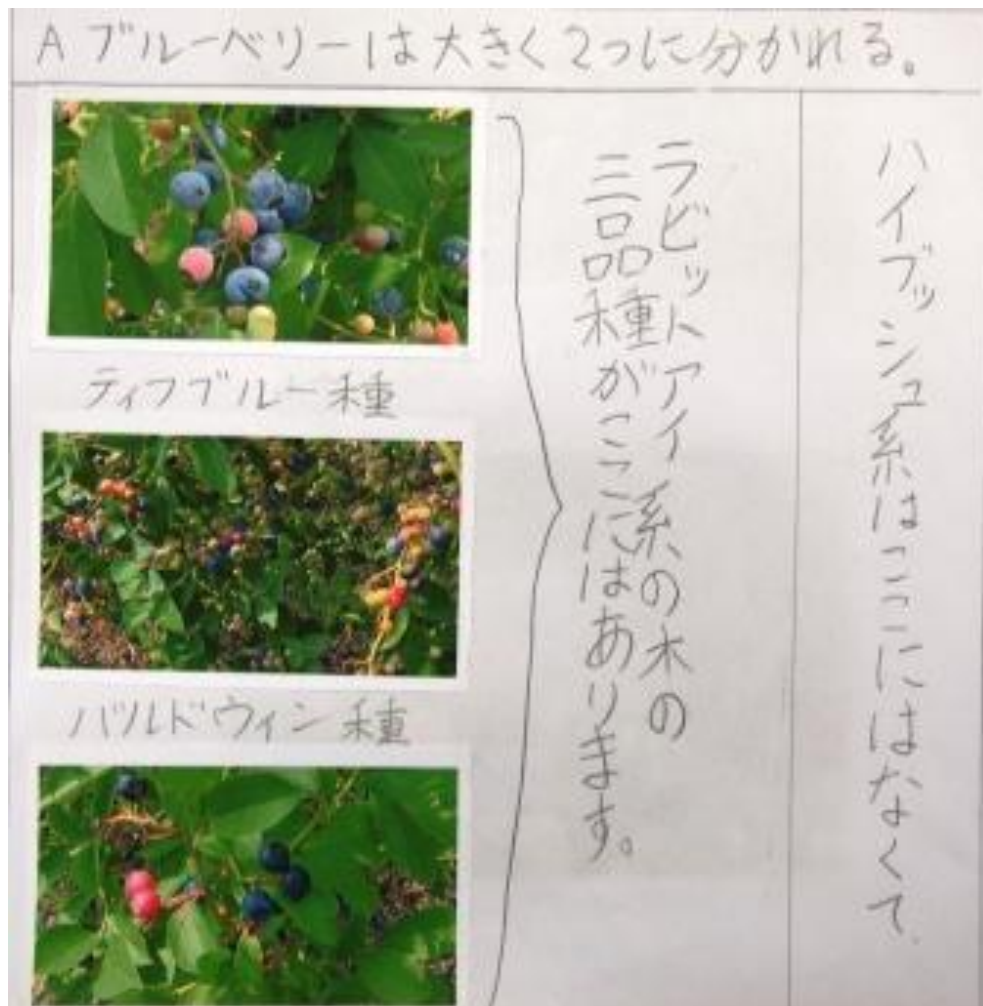 A ブルーベリーは大きく2つに分かれる。
ハイブッシュ系はここにはなくて
ラビットアイ系の木の
三品種がここにはあります。
ティフブルー種
バルドウィン種